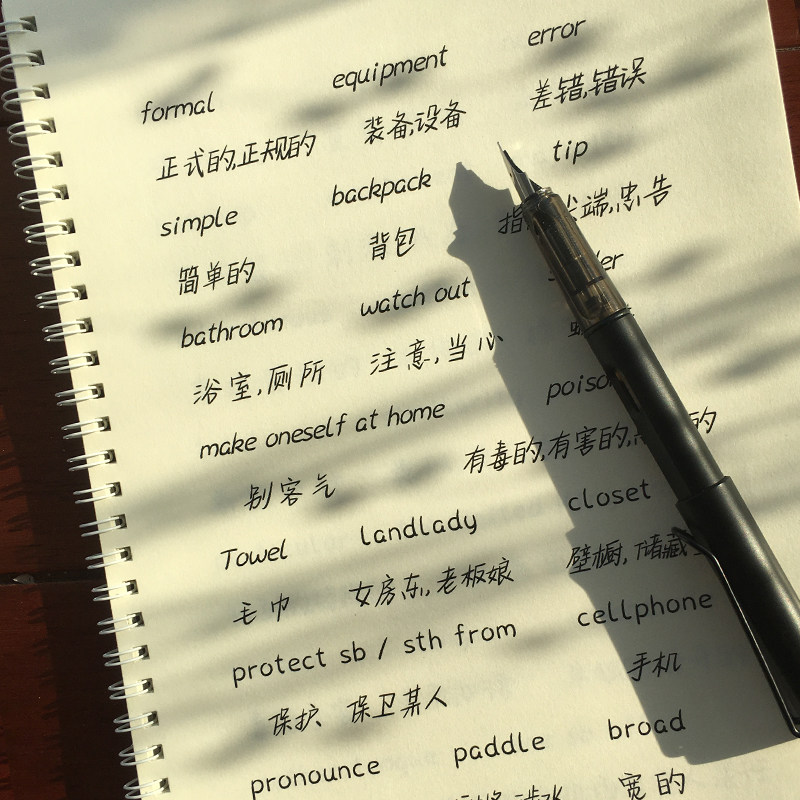 formal equipment error
正式的,正规的 装备,设备 差错,错误
simple backpack tip
简单的 背包 指 尖端,忠告
bathroom watch out
浴室,厕所 注意,当心
make oneself at home
别客气 有毒的,有害的, 的
Towel landlady closet
毛巾 女房东,老板娘 壁橱,储藏
protect sb / sth from cellphone
保护、保卫某人 手机
pronounce paddle broad
宽的